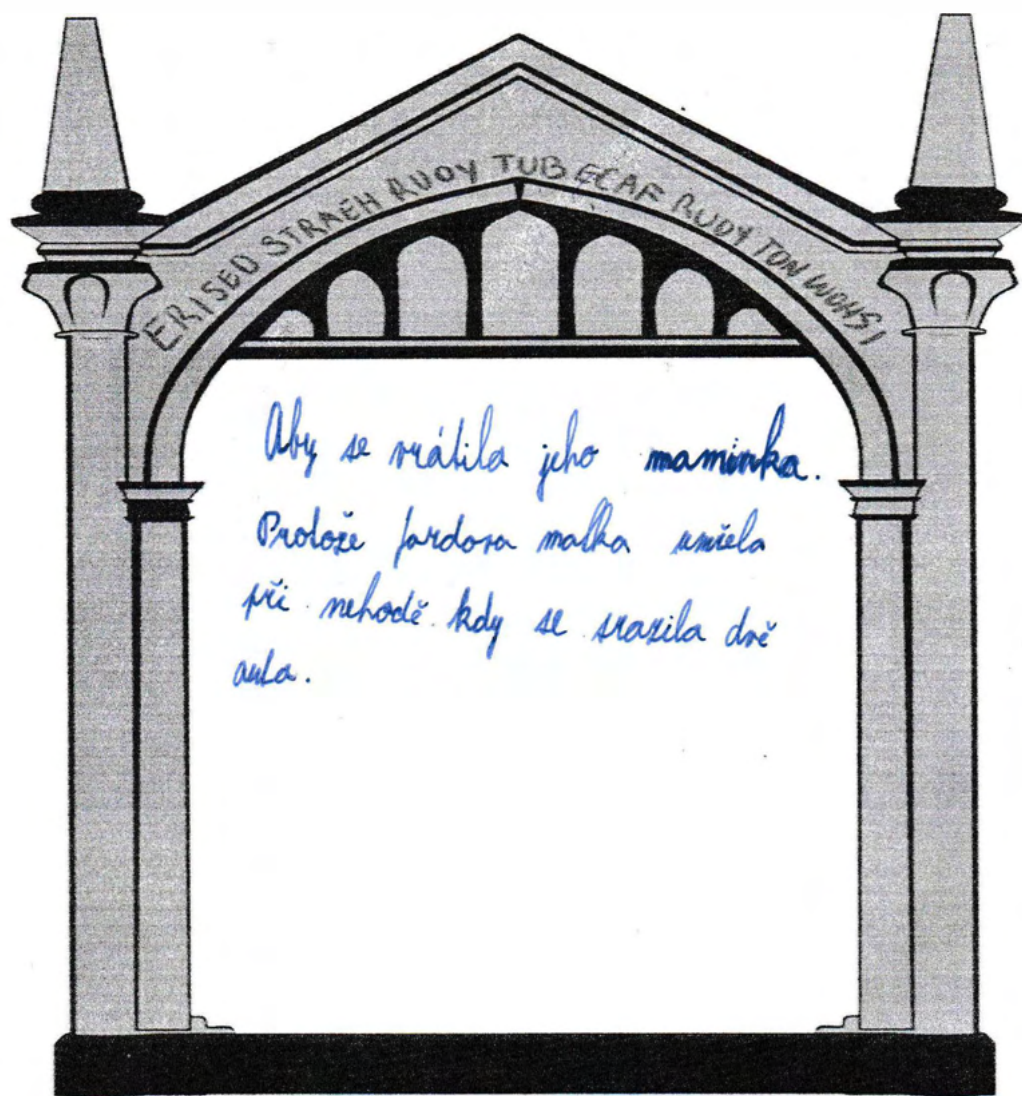 ERISED STRAEH RUOY TUB ECAF RUOY TON WOHSI
Aby se vrátila jeho maminka.
Protože jardova matka umřela
při nehodě kdy se srazila dvě
auta.